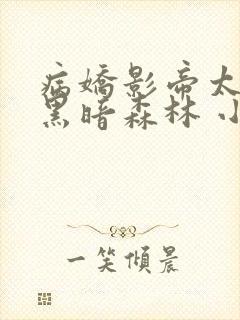 病嬌影帝太
黑暗森林 小
一笑傾晨